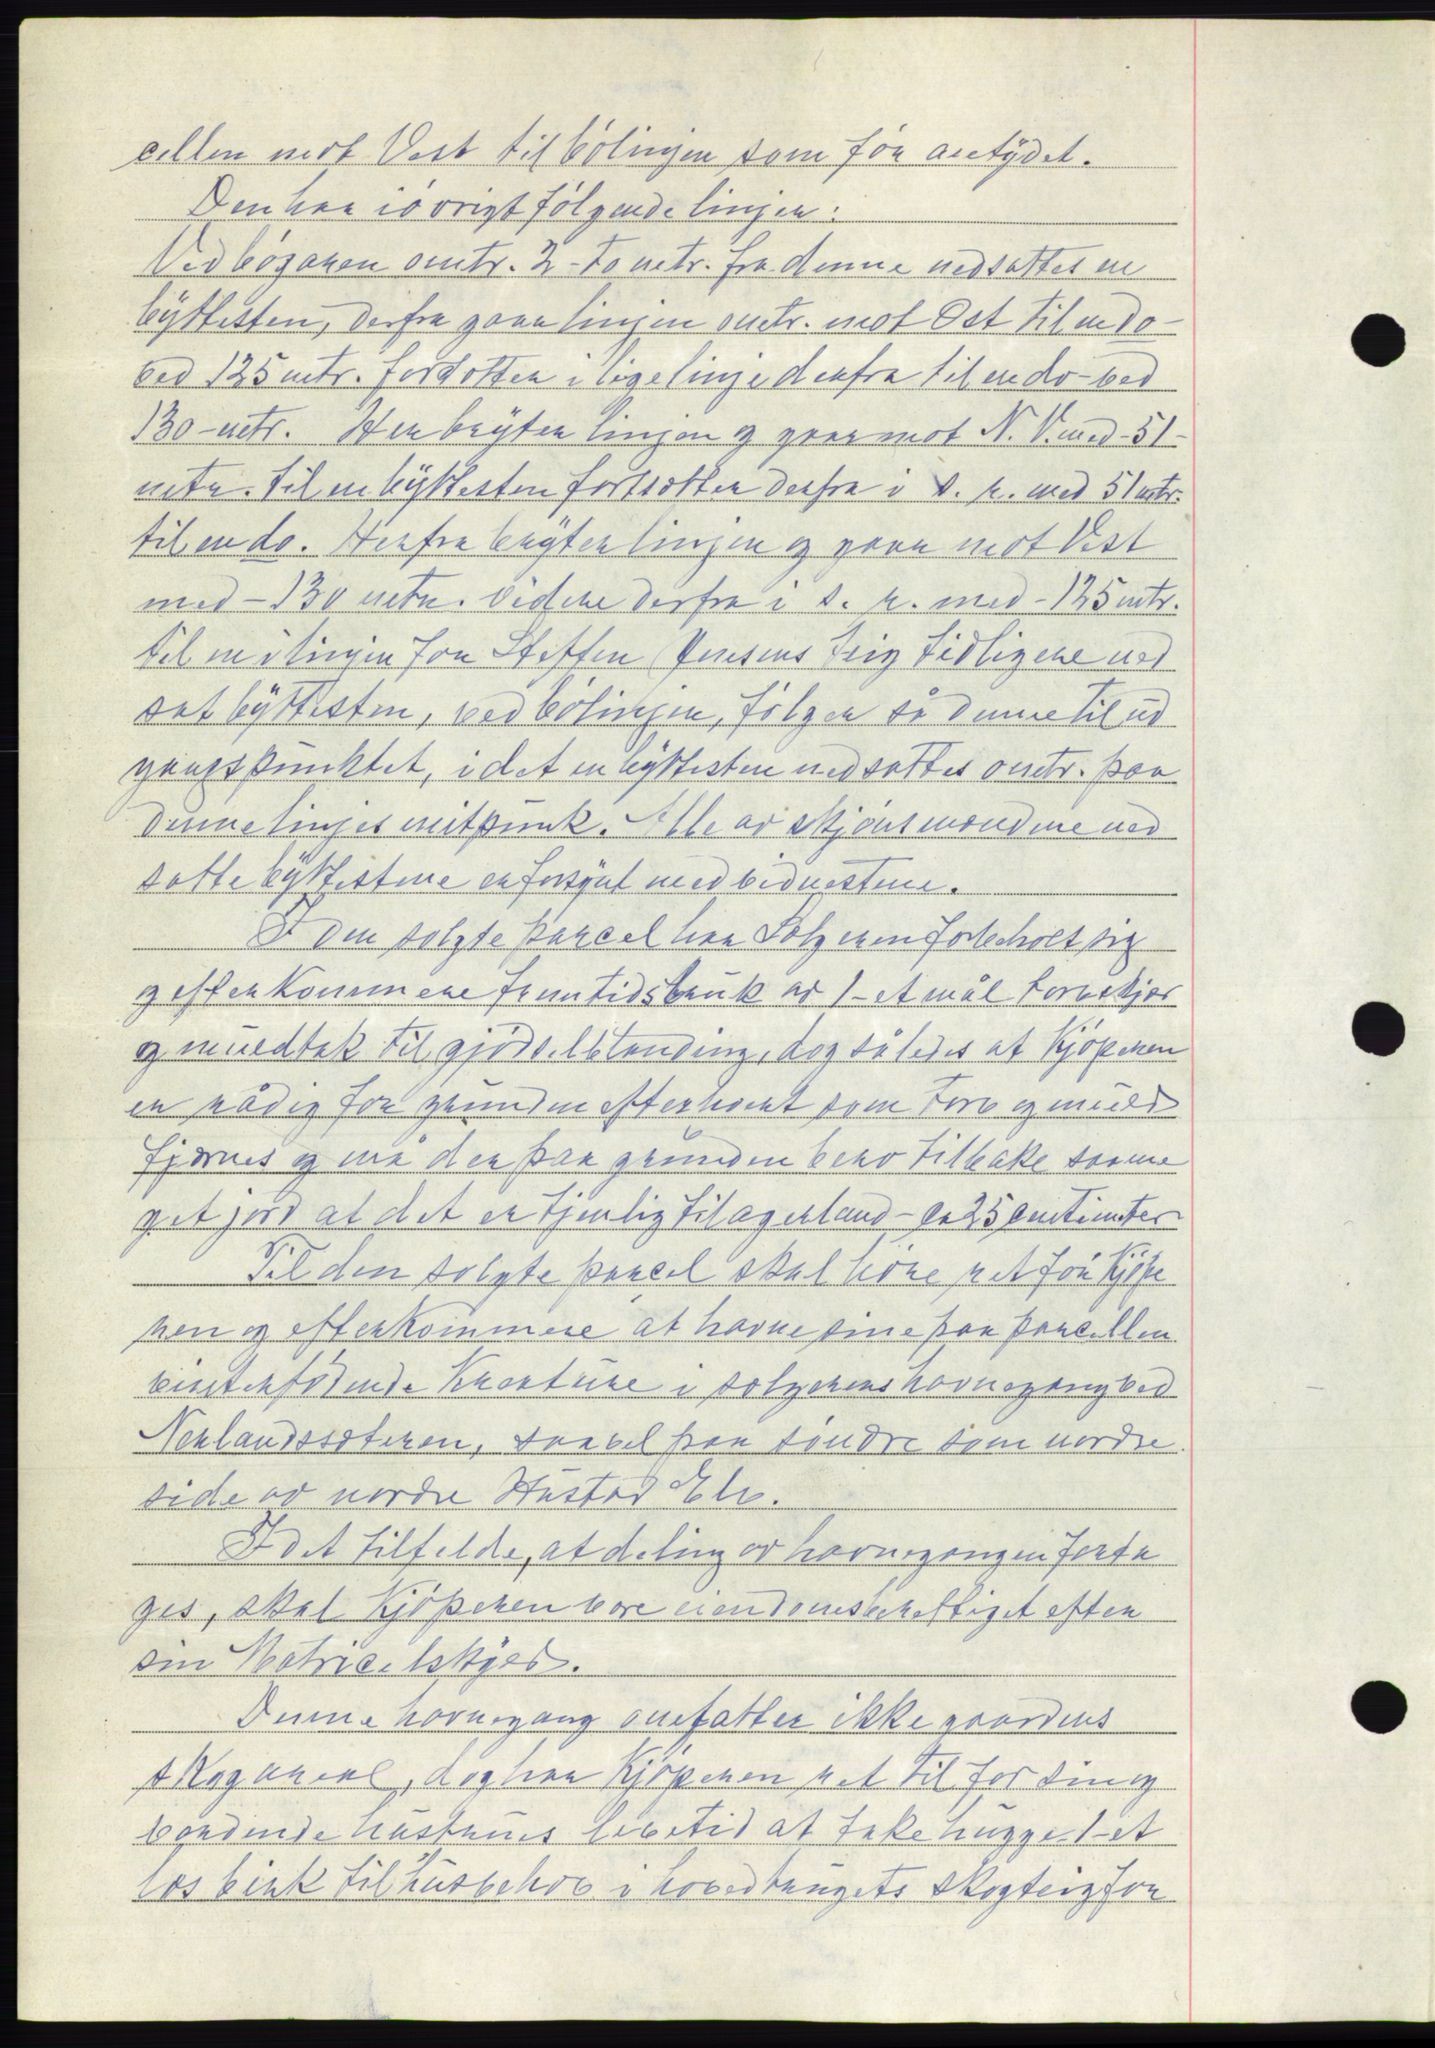 cellen mot Vest til bölinjen som för antydet.
Den har iövrigt fölgende linjer:
Ved bögaren omtr. 2 - to metr. fra denne nedsattes en
byttesten, derfra gaar linjen omtr. mot Ost til en do-
ved 125 mtr. forsætter i lige linje derfra til en do - ved
130 - metr. Her bryter linjen og gaar mot N. V. med - 51 -
metr. til en byttesten fortsætter derfra i s. r. med 51 mtr.
til en do. Herfra bryter linjen og gaar mot Vest
med - 130 metr. videre derfra i s. r. med - 125 mtr.
til en i linjen for Steffen Jensens teig tidligere ned
sat byttesten, ved bölinjen, fölger så denne til ud
gangspunktet, idet en byttesten nedsattes omtr. paa
denne linjes mitpunk. Alle av skjönsmændene ned
satte byttestene er forsynt med vidnestene.
I den solgte parcel har Sælgeren forbeholt sig
og efterkommere fremtidsbruk av 1 - et mål torvskjær
og muldtak til gjödselblanding, dog således at Kjöperen
er rådig for grunden efterhvert som torv og muld
fjærnes og må der paa grunden bero tilbake saame
get jord at det er tjenlig til agerland - ca 25 centimeter
Til den solgte parcel skal höre ret för Kjöpe
ren og efterkommere at havne sine paa parcellen
vinterfödende Kreature i sælgerens havnegang ved
Nerlandssæteren, saavel paa söndre som nordre
side av nordre Hustad Elv.
I det tilfelde, at deling av havnegangen forta
ges, skal Kjöperen være eiendomsberettiget efter
sin Matricelskyld.
Denne havnegang omfatter ikke gaardens
skogareal, dog har Kjöperen ret til for sin og
vordende hustrues levetid at take hugge 1 - et
las birk til husbehov i hovedbrugets skogteig for